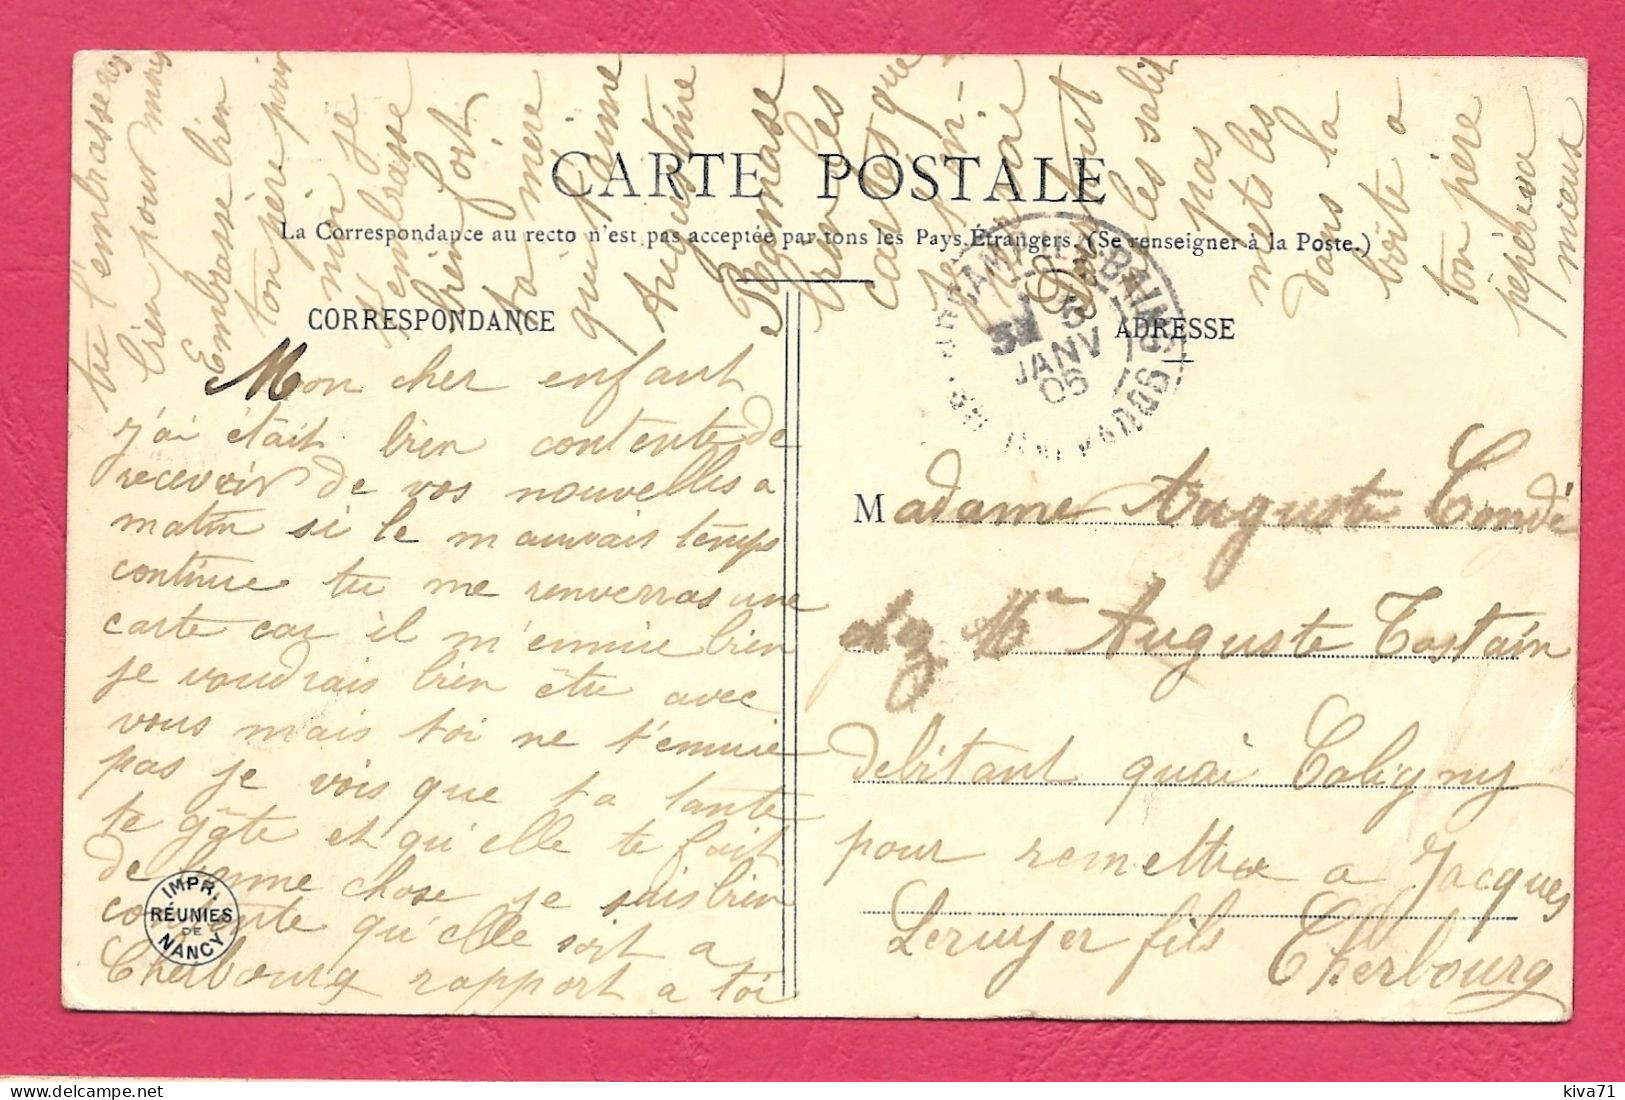 CARTE POSTALE
La Correspondance au recto n'est pas acceptée par tous les Pays Étrangers. (Se renseigner à la Poste.)
CORRESPONDANCE
ADRESSE
Mon cher enfant
j'ai était bien contente de
recevoir de vos nouvelles a
matin si le mauvais temps
continue tu me renverras une
carte car il m'ennuie bien
je voudrais bien être avec
vous mais toi ne t'ennuie
pas je vois que ta tante
te gâte et qu'elle te fait
de bonne chose je suis bien
contente qu'elle soit a
Cherbourg rapport a toi
tu l'embrasseras
bien pour nous
Embrasse bien
ton père pour
moi je
t'embrasse
bien fort
ta mère
qui t'aime
Augustine
Ramasse
bien les
cartes que
les salit
pas
mets les
dans la
boîte a
ton père
pépère va
mieux
BAINS
5
JANV
06
CALVADOS
Madame Auguste Condé
chez Mr Auguste Tostain
debitant quai Caligny
pour remettre a Jacques
Leruyer fils Cherbourg
IMPR.
RÉUNIES
DE
NANCY
kiva71